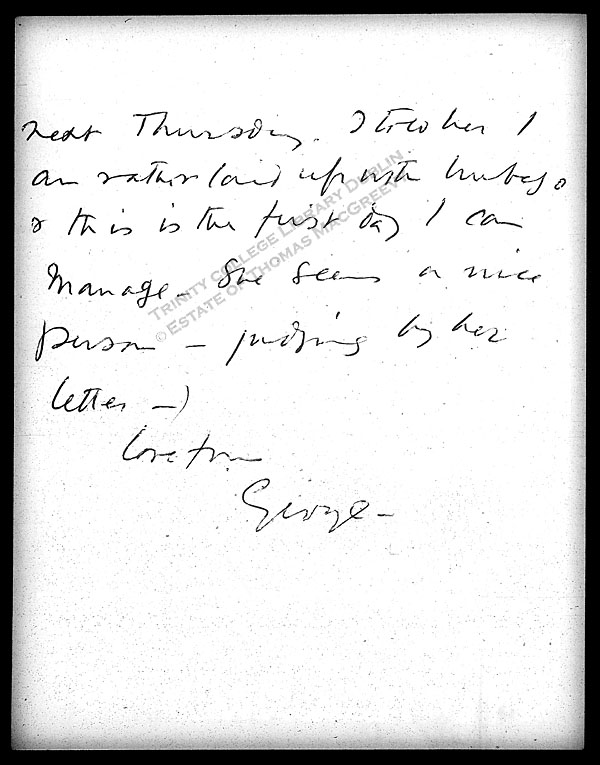 next Thursday. I told her I
am rather laid up with lumbago
& this is the first day I can
manage - She seems a nice
person - judging by her
letter -)
love from
George -
TRINITY COLLEGE LIBRARY DUBLIN
© ESTATE OF THOMAS MACGREEVY